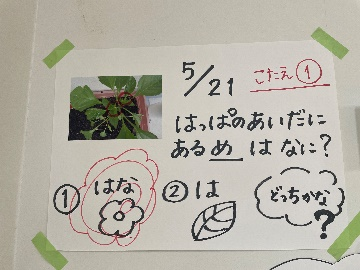 5/21
こたえ①
はっぱのあいだに
あるめ は なに?
① はな
② は
どっちかな?